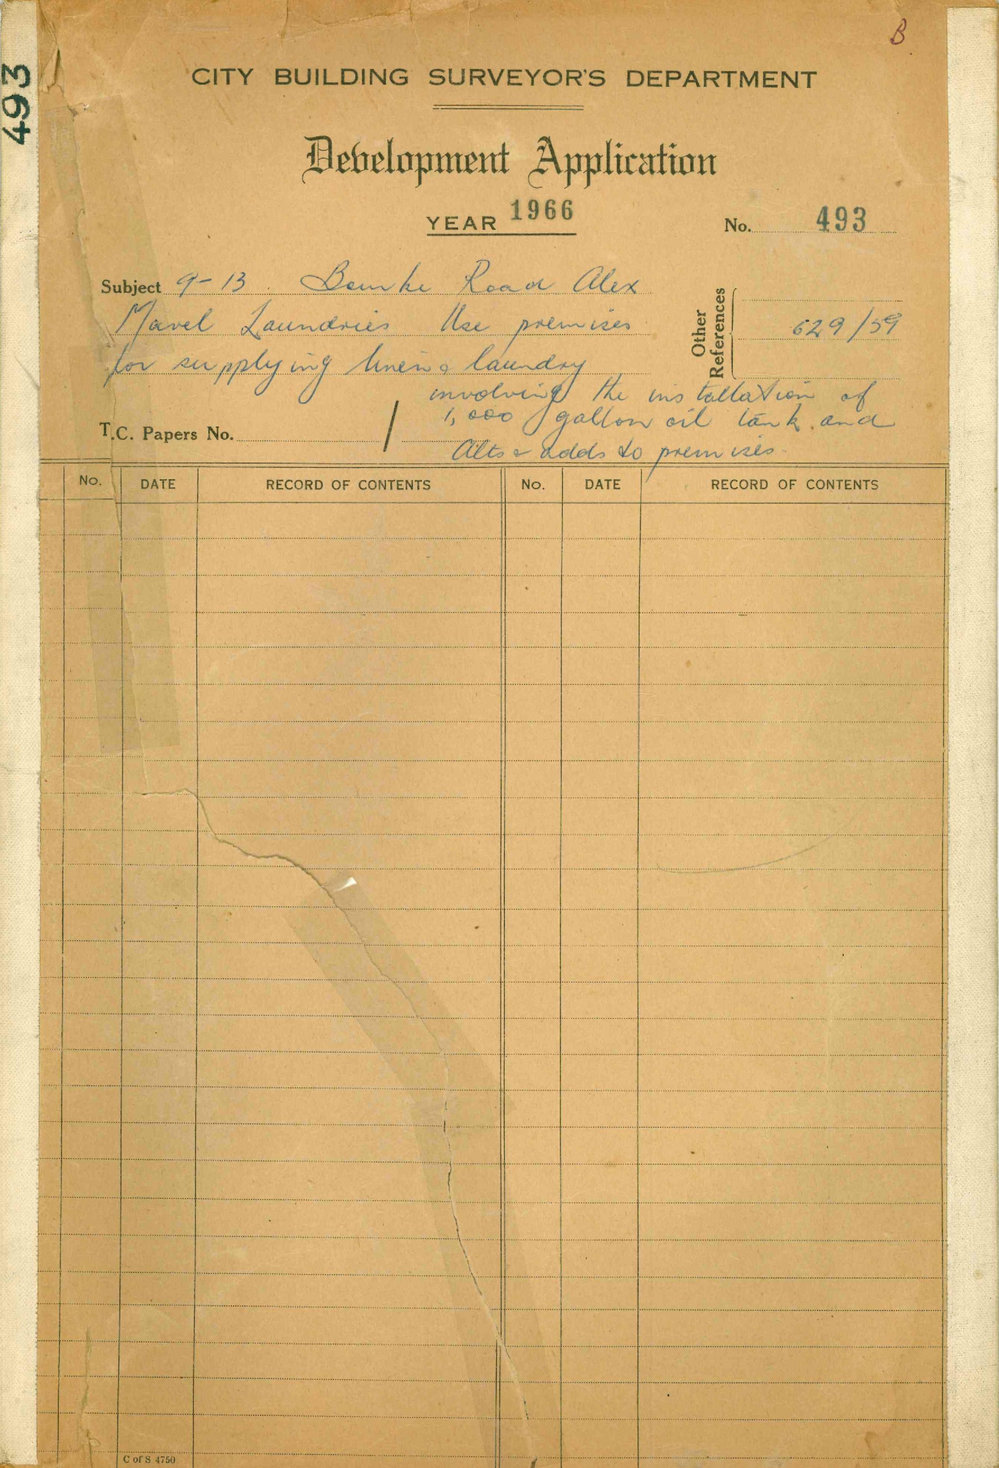 B
493
CITY BUILDING SURVEYOR'S DEPARTMENT
Development Application
YEAR 1966
No. 493
Subject 9-13. Bourke Road Alex
Mavel Laundries Use premises
for supplying linen & laundry
involving the installation of
1,000 gallon oil tank and
Alts & adds to premises.
Other References
629/59
T.C. Papers No. /
No. DATE RECORD OF CONTENTS No. DATE RECORD OF CONTENTS
C of S 4750